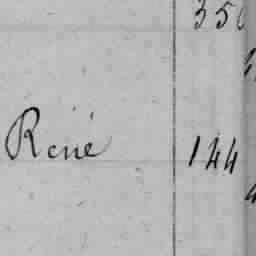 350
René 144